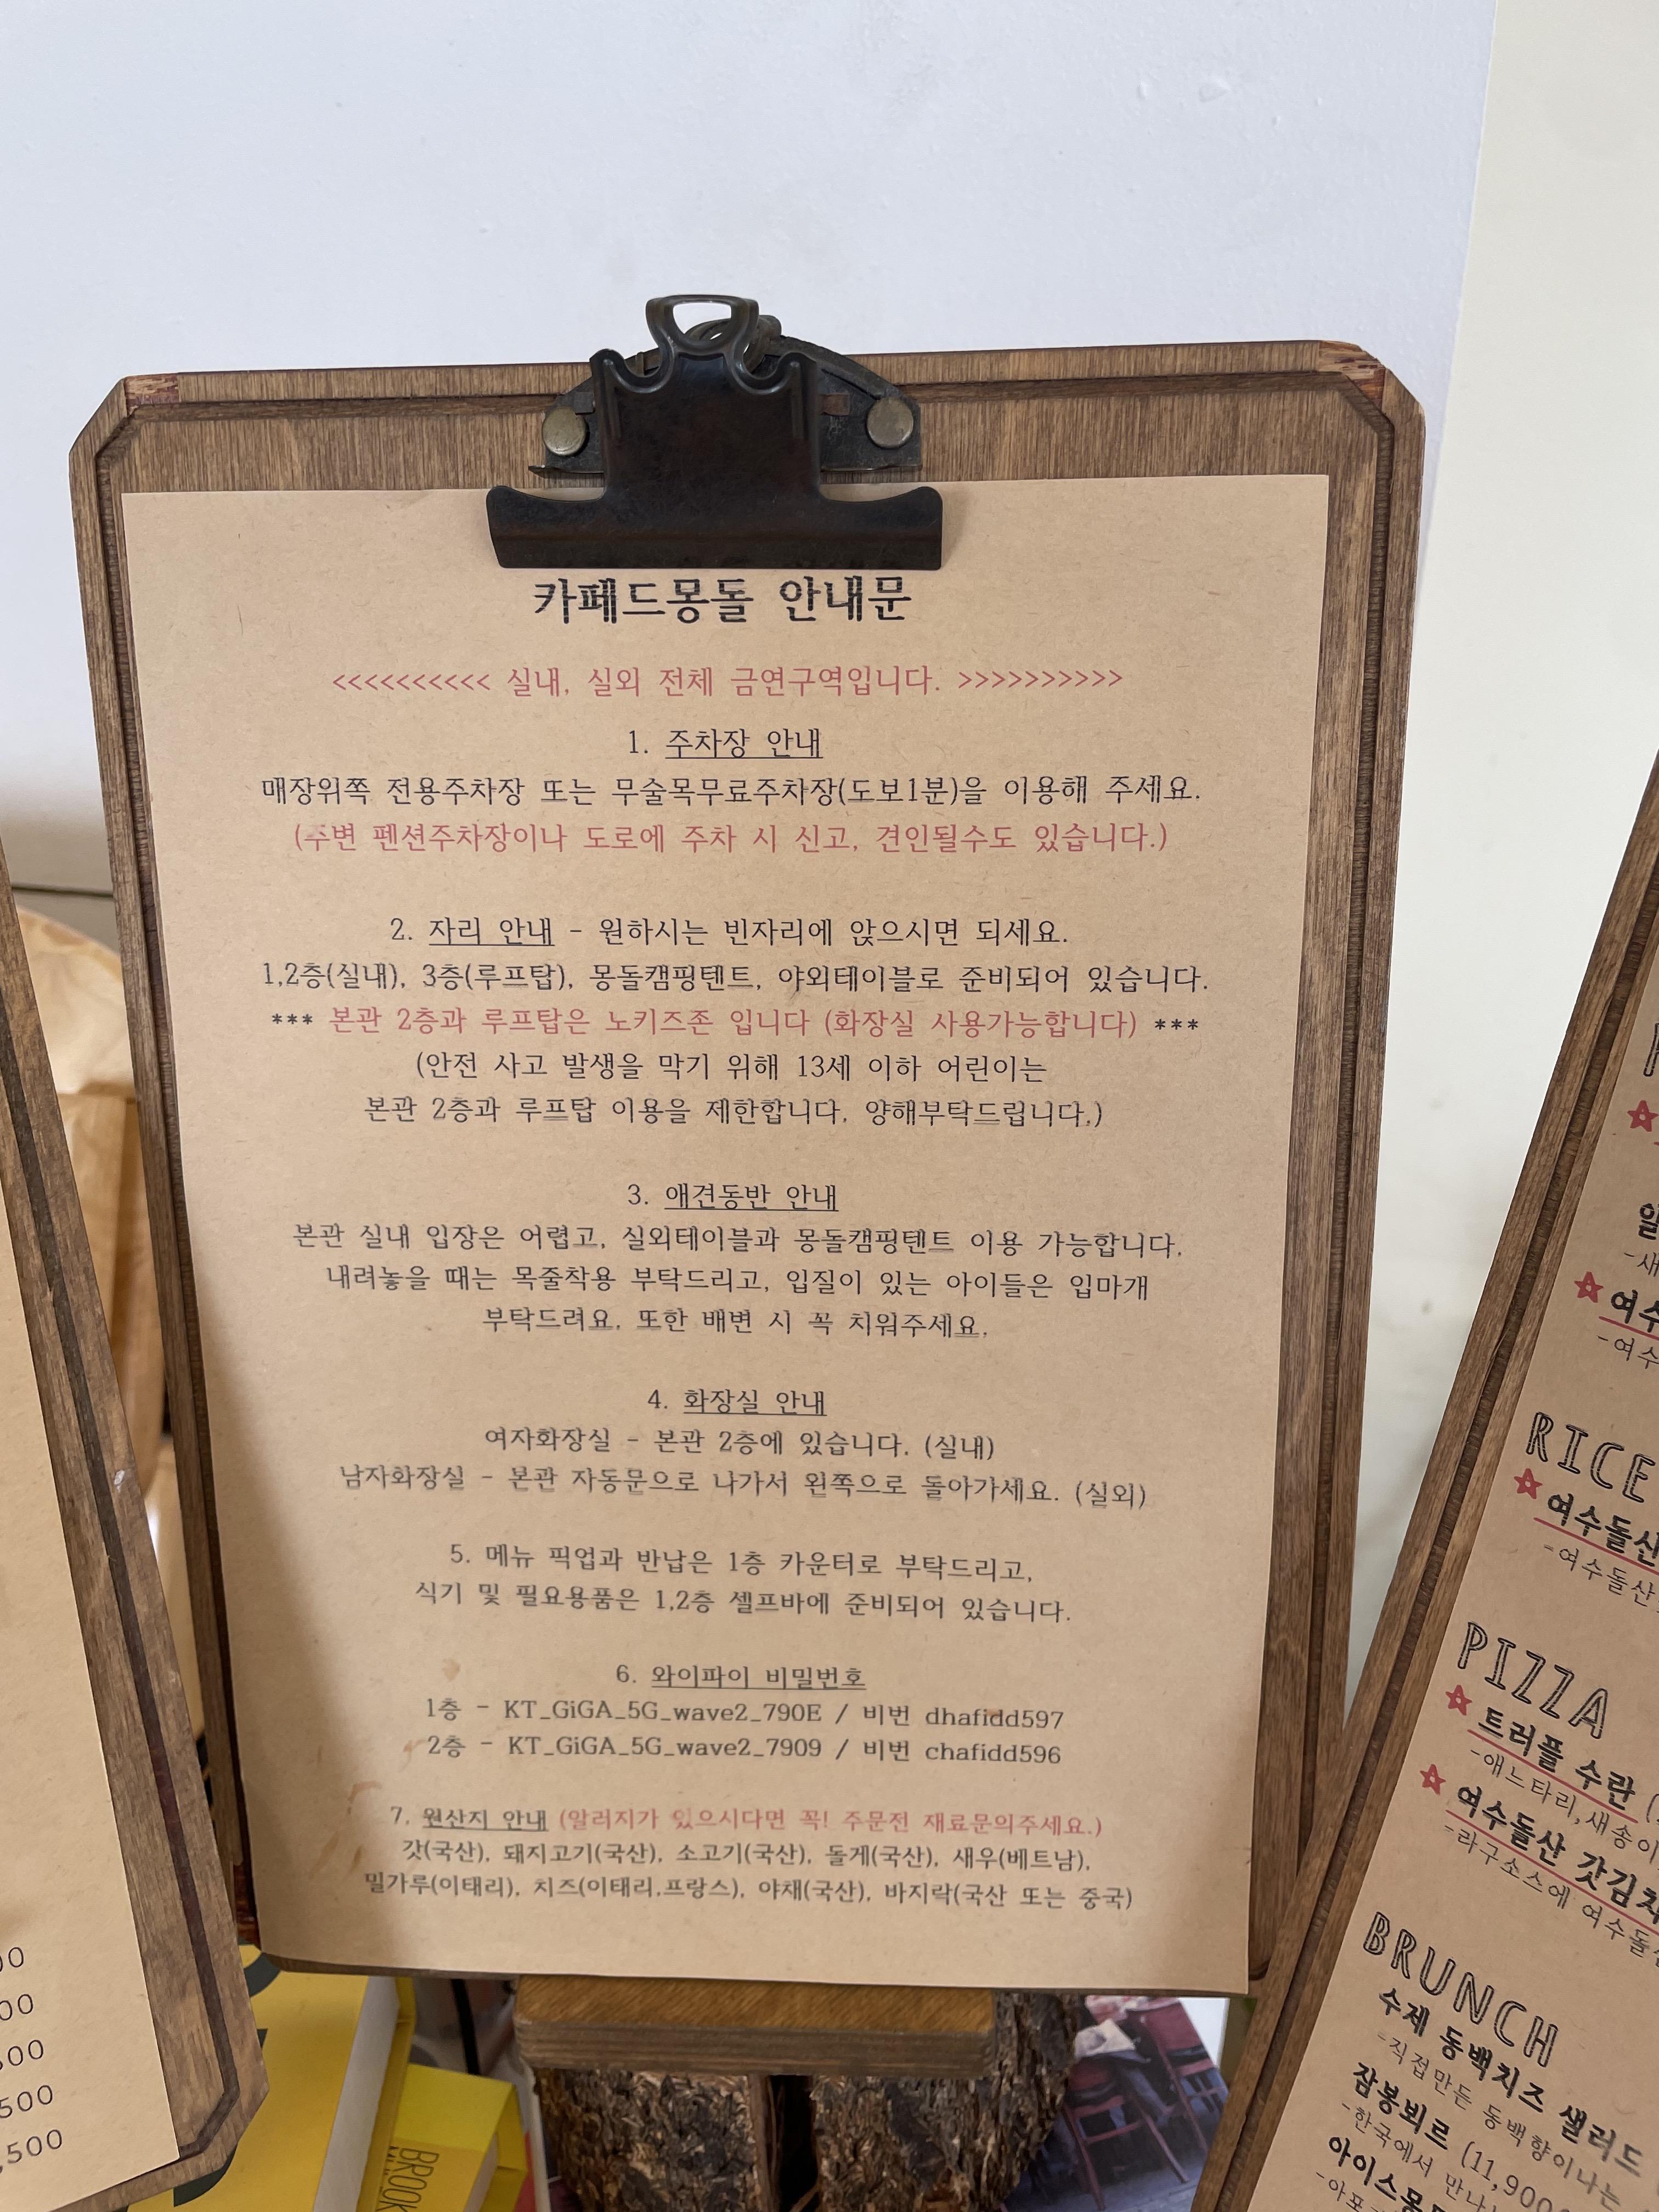 카페드몽돌 안내문
<<<<<<<<<< 실내, 실외 전체 금연구역입니다. >>>>>>>>>>
1. 주차장 안내
매장위쪽 전용주차장 또는 무술목무료주차장(도보1분)을 이용해 주세요.
(주변 펜션주차장이나 도로에 주차 시 신고, 견인될수도 있습니다.)
2. 자리 안내 - 원하시는 빈자리에 앉으시면 되세요.
1,2층(실내), 3층(루프탑), 몽돌캠핑텐트, 야외테이블로 준비되어 있습니다.
*** 본관 2층과 루프탑은 노키즈존 입니다 (화장실 사용가능합니다) ***
(안전 사고 발생을 막기 위해 13세 이하 어린이는
본관 2층과 루프탑 이용을 제한합니다. 양해부탁드립니다.)
3. 애견동반 안내
본관 실내 입장은 어렵고, 실외테이블과 몽돌캠핑텐트 이용 가능합니다.
내려놓을 때는 목줄착용 부탁드리고, 입질이 있는 아이들은 입마개
부탁드려요. 또한 배변 시 꼭 치워주세요.
4. 화장실 안내
여자화장실 - 본관 2층에 있습니다. (실내)
남자화장실 - 본관 자동문으로 나가서 왼쪽으로 돌아가세요. (실외)
5. 메뉴 픽업과 반납은 1층 카운터로 부탁드리고,
식기 및 필요용품은 1,2층 셀프바에 준비되어 있습니다.
6. 와이파이 비밀번호
1층 - KT_GiGA_5G_wave2_790E / 비번 dhafidd597
2층 - KT_GiGA_5G_wave2_7909 / 비번 chafidd596
7. 원산지 안내 (알러지가 있으시다면 꼭! 주문전 재료문의주세요.)
갓(국산), 돼지고기(국산), 소고기(국산), 돌게(국산), 새우(베트남),
밀가루(이태리), 치즈(이태리,프랑스), 야채(국산), 바지락(국산 또는 중국)
RICE
여수돌산
-여수돌산
PIZZA
트러플 수란
-애느타리,새송이
여수돌산 갓김치
-라구소스에 여수돌산
BRUNCH
수제 동백치즈 샐러드
-직접만든 동백향이나는
잠봉뵈르 (11,900
-한국에서 만나
500
,500
BROOK